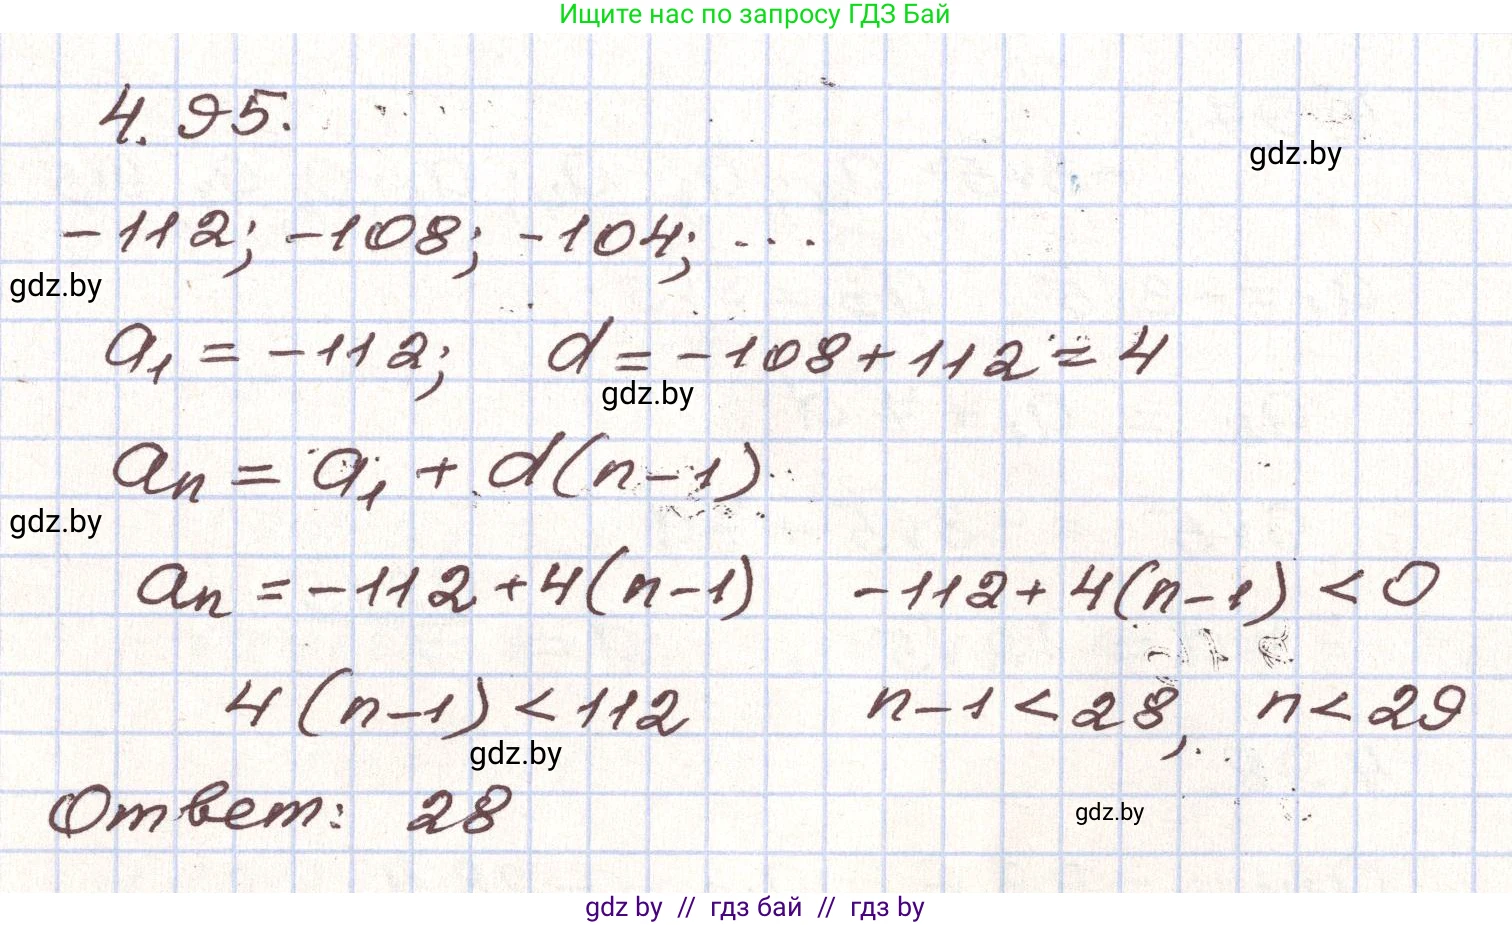 Ищите нас по запросу ГДЗ Бай
4.95.
gdz.by
-112; -108; -104; ...
gdz.by
a₁ = -112; d = -108 + 112 = 4
gdz.by
aₙ = a₁ + d(n-1)
gdz.by
aₙ = -112 + 4(n-1) -112 + 4(n-1) < 0
4(n-1) < 112 n-1 < 28, n < 29
gdz.by
Ответ: 28
gdz.by
gdz by // гдз бай // гдз by